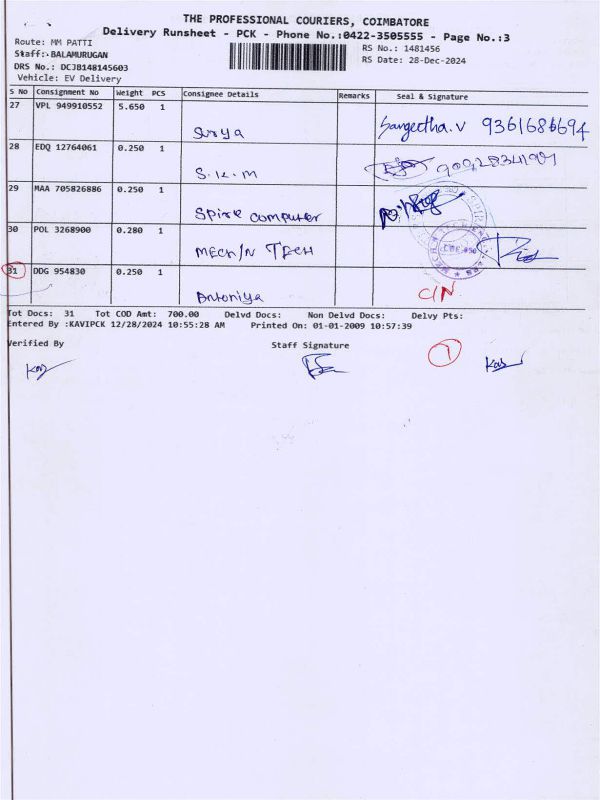 THE PROFESSIONAL COURIERS, COIMBATORE
Delivery Runsheet - PCK - Phone No.:0422-3505555 - Page No.:3
Route: MM PATTI
Staff: BALAMURUGAN
DRS No.: DCJB148145603
Vehicle: EV Delivery
RS No.: 1481456
RS Date: 28-Dec-2024
S No Consignment No Weight PCS Consignee Details Remarks Seal & Signature
27 VPL 949910552 5.650 1 Surya Sangeetha.V 9361686694
28 EDQ 12764061 0.250 1 S.K.M
29 MAA 705826886 0.250 1 Spire computer
30 POL 3268900 0.280 1 MECH/N TECH
31 DDG 954830 0.250 1 Antoniya C/N
Tot Docs: 31 Tot COD Amt: 700.00 Delvd Docs: Non Delvd Docs: Delvy Pts:
Entered By :KAVIPCK 12/28/2024 10:55:28 AM Printed On: 01-01-2009 10:57:39
Verified By Staff Signature